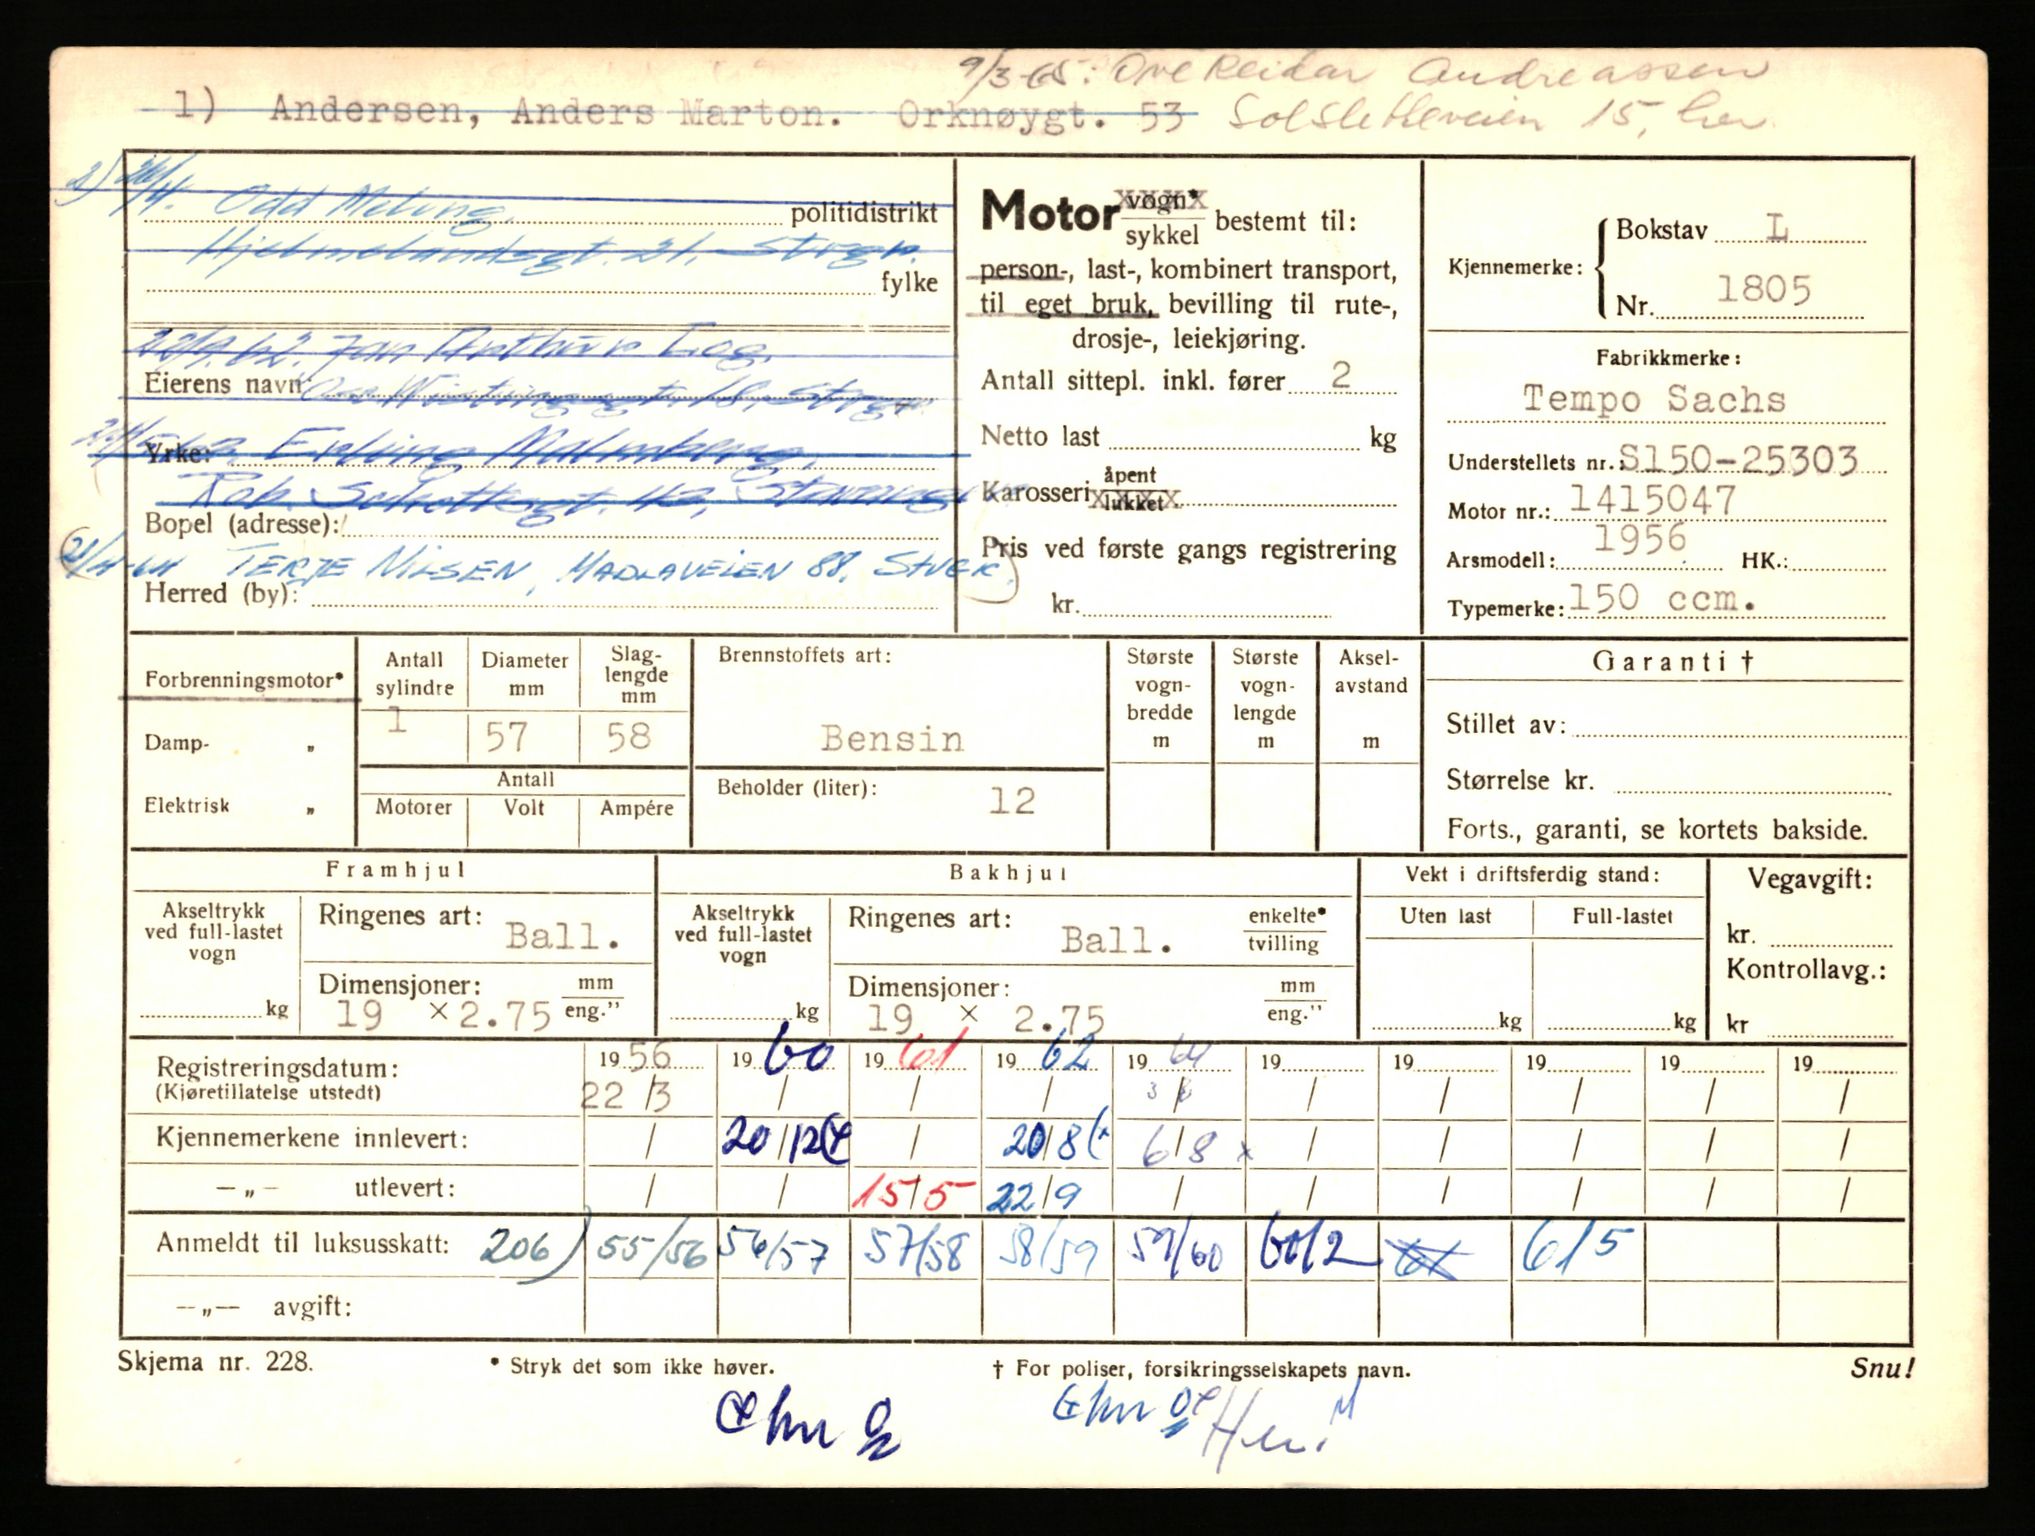 9/3-65: Ove Reidar Andreassen
1) Andersen, Anders Marton. Orknøygt. 53 Solsletteveien 15, her
2) 4. Odd Meling politidistrikt
Hjelmelandsgt. 21. Stvgr. fylke
22/9.62. Jan Arthur
Eierens navn: 18. Stvgr.
Yrke: Erling Malmberg,
Rob. 43, Stavanger
Bopel (adresse):
21/4-64 TERJE NILSEN, MADLAVEIEN 88, STVGR.
Herred (by):
Motor vogn* / sykkel bestemt til:
person-, last-, kombinert transport,
til eget bruk, bevilling til rute-,
drosje-, leiekjøring.
Antall sittepl. inkl. fører 2
Netto last kg
Karosseri åpent / lukket
Pris ved første gangs registrering
kr.
Kjennemerke: Bokstav L
Nr. 1805
Fabrikkmerke:
Tempo Sachs
Understellets nr.: S150-25303
Motor nr.: 1415047
Arsmodell: 1956 HK.:
Typemerke: 150 ccm.
Forbrenningsmotor*
Damp- "
Elektrisk "
Antall sylindre 1
Diameter mm 57
Slag-lengde mm 58
Antall
Motorer Volt Ampére
Brennstoffets art:
Bensin
Beholder (liter): 12
Største vogn-bredde m
Største vogn-lengde m
Aksel-avstand m
Garanti †
Stillet av:
Størrelse kr.
Forts., garanti, se kortets bakside.
Framhjul
Akseltrykk ved full-lastet vogn kg
Ringenes art: Ball.
Dimensjoner: mm / eng."
19 × 2.75
Bakhjul
Akseltrykk ved full-lastet vogn kg
Ringenes art: Ball. enkelte* / tvilling
Dimensjoner: mm / eng."
19 × 2.75
Vekt i driftsferdig stand:
Uten last Full-lastet
kg kg
Vegavgift:
kr.
Kontrollavg.:
kr
Registreringsdatum: 1956 1960 1961 1962 1964 19 19 19 19 19
(Kjøretillatelse utstedt) 22/3 / / / / / / / / /
Kjennemerkene innlevert: / 20/12 / 20/8 6/8 x / / / / /
—„— utlevert: / / 15/5 22/9 / / / / / /
Anmeldt til luksusskatt: 206) 55/56 56/57 57/58 58/59 59/60 60/2 61 61/5
—„— avgift:
Skjema nr. 228. * Stryk det som ikke høver. † For poliser, forsikringsselskapets navn. Snu!